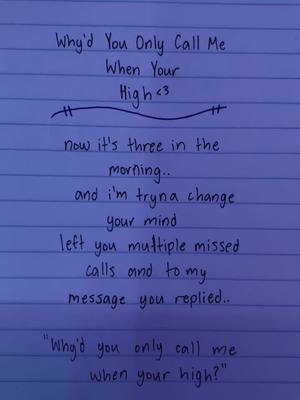 Why'd You Only Call Me
When Your
High <3
now it's three in the
morning..
and i'm tryna change
your mind
left you multiple missed
calls and to my
message you replied..
"Why'd you only call me
when your high?"